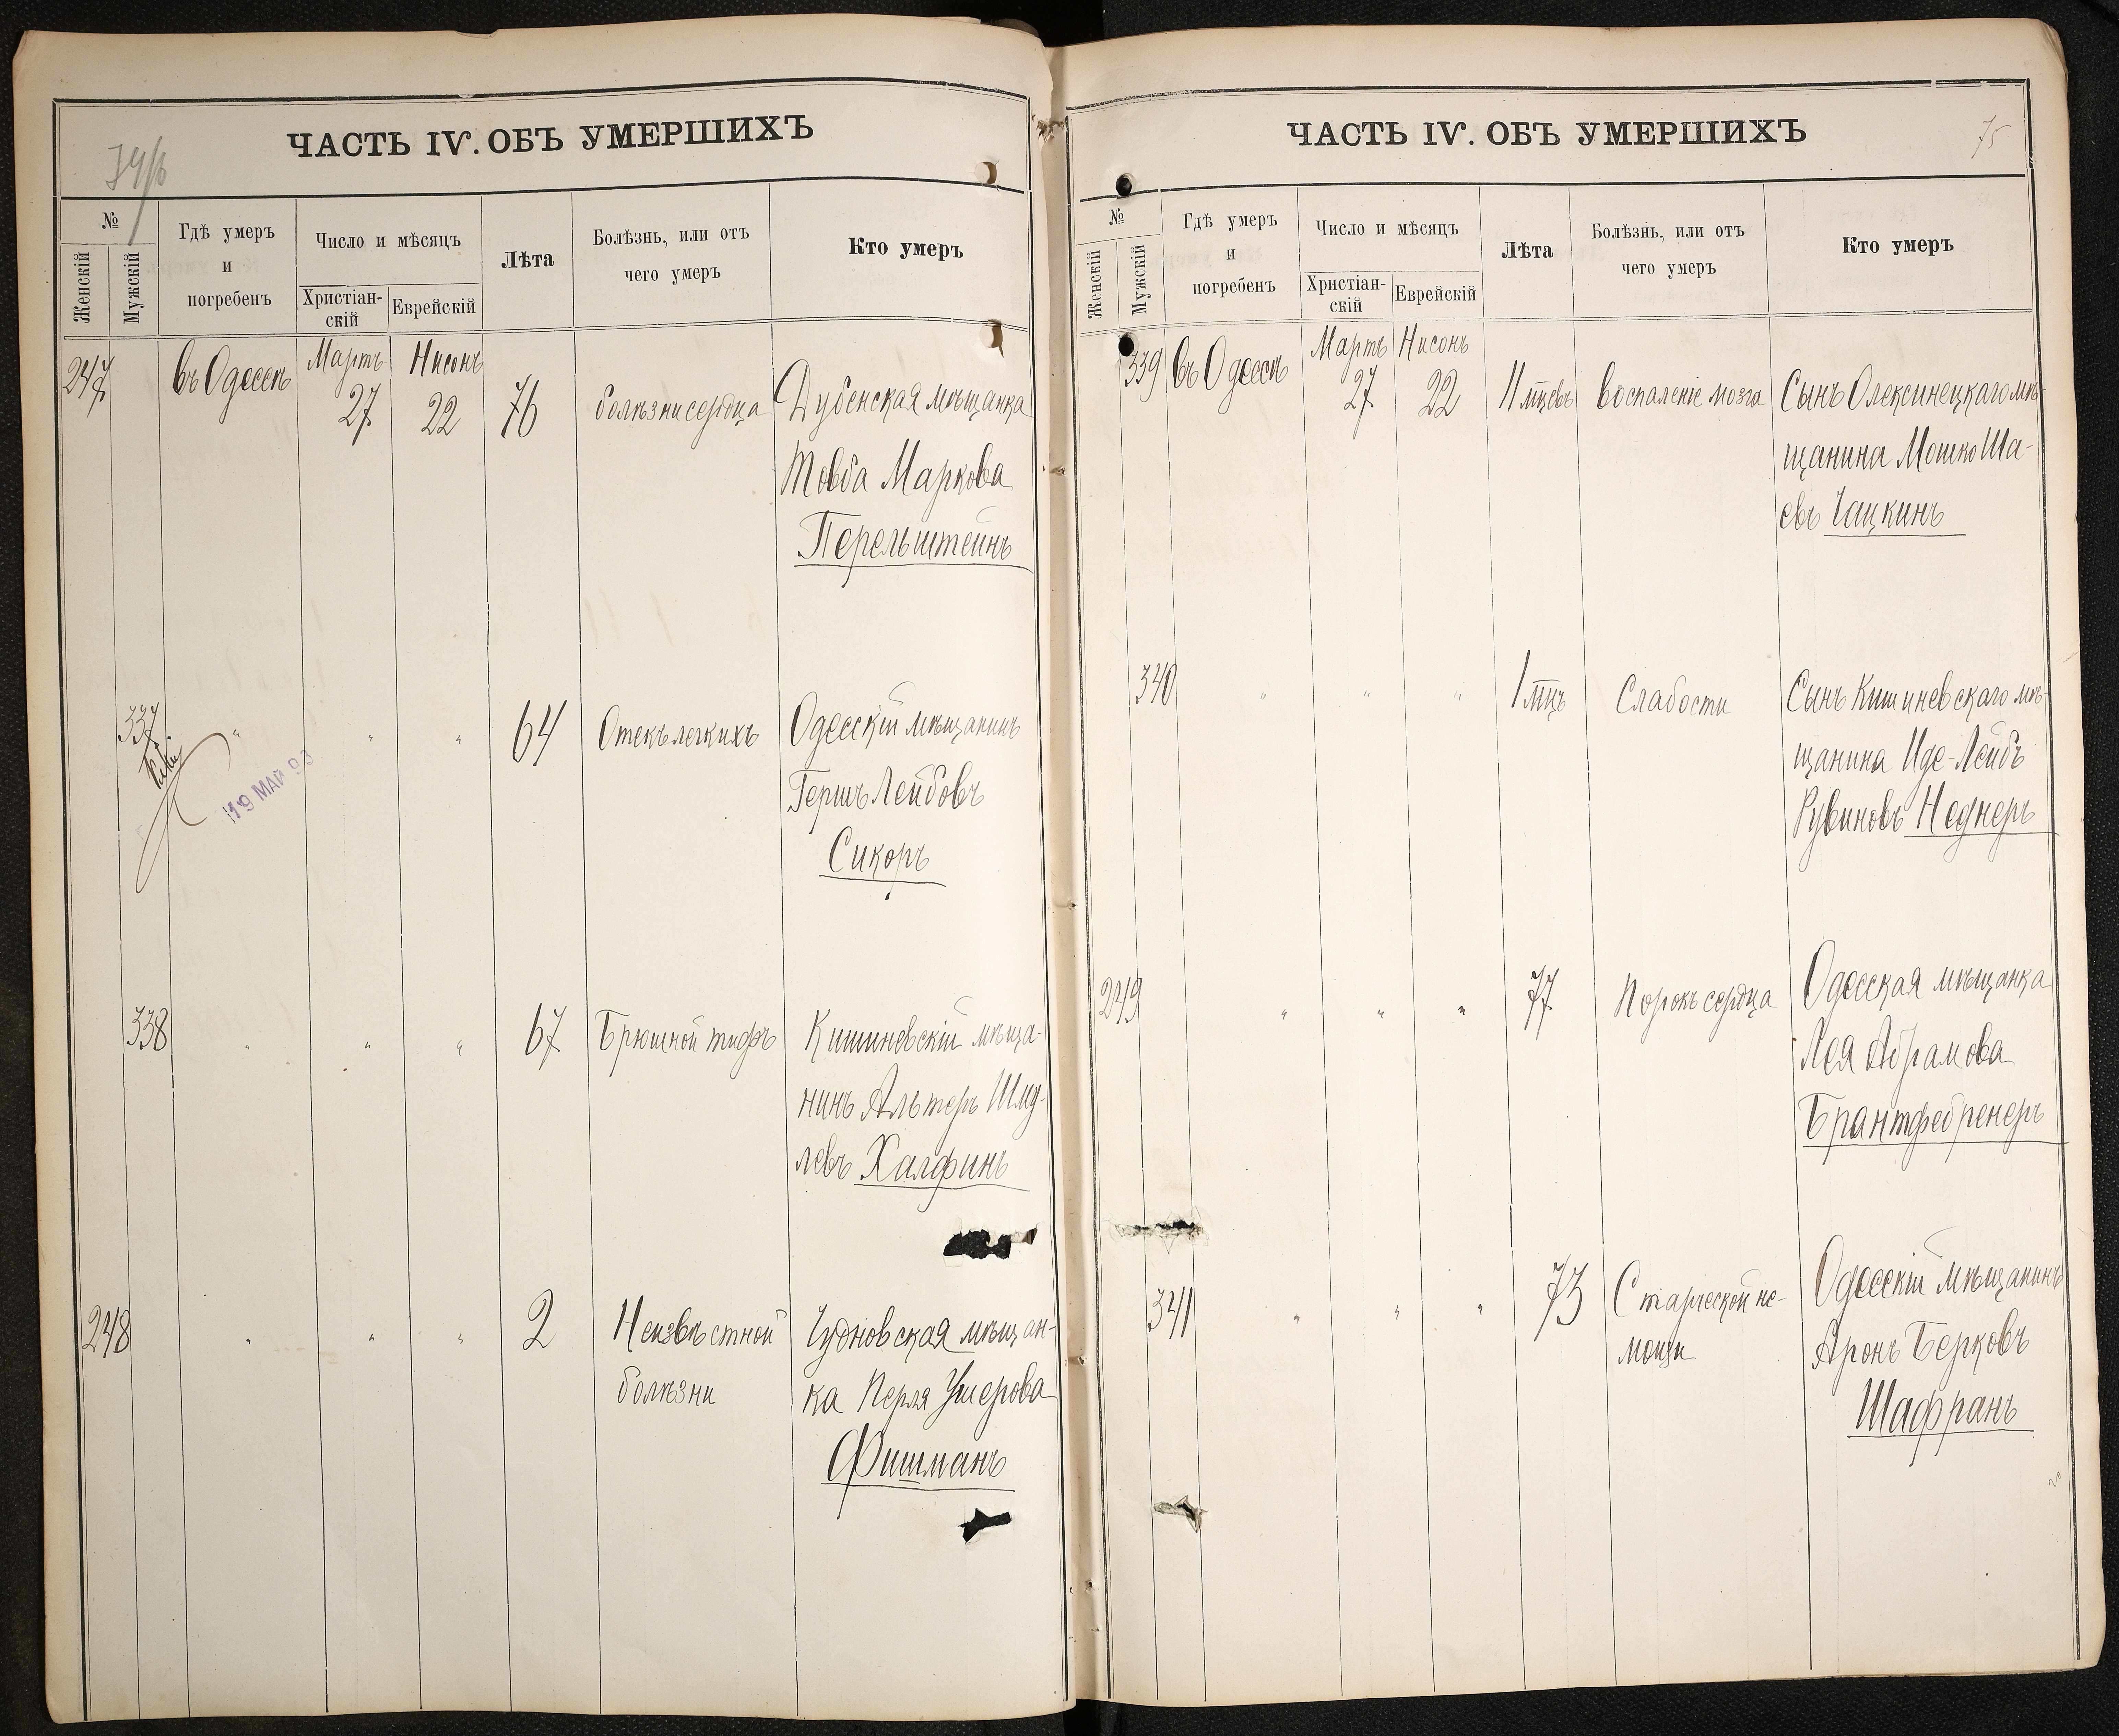 74/б
ЧАСТЬ IV. ОБЪ УМЕРШИХЪ
№
Женскій
Мужскій
Гдѣ умеръ
и
погребенъ
Число и мѣсяцъ
Христіан-
скій
Еврейскій
Лѣта
Болѣзнь, или отъ
чего умеръ
Кто умеръ
247 въ Одессѣ Мартъ 27 Нисонъ 22 76 болѣзни сердца Дубенская мѣщанка
Товба Маркова
Перельштейнъ
337 " " " 64 Отекъ легкихъ Одесскій мѣщанинъ
Гершъ Лейбовъ
Сикоръ
19 МАЙ 93
338 " " " 67 Брюшной тифъ Кишиневскій мѣща-
нинъ Альтеръ Шму-
левъ Халфинъ
248 " " " 2 Неизвѣстной Чудновская мѣщан-
болѣзни ка Перля Ушерова
Фишманъ
75
ЧАСТЬ IV. ОБЪ УМЕРШИХЪ
№
Женскій
Мужскій
Гдѣ умеръ
и
погребенъ
Число и мѣсяцъ
Христіан-
скій
Еврейскій
Лѣта
Болѣзнь, или отъ
чего умеръ
Кто умеръ
339 въ Одессѣ Мартъ 27 Нисонъ 22 11 мцевъ воспаленіе мозга Сынъ Олексинецкаго мѣ-
щанина Мошко Ша-
евъ Чацкинъ
340 " " " 1 мцъ Слабости Сынъ Кишиневскаго мѣ-
щанина Иде-Лейбъ
Рувиновъ Неднеръ
249 " " " 77 Порокъ сердца Одесская мѣщанка
Лея Абрамова
Брантфебренеръ
341 " " " 73 Старческой не- Одесскій мѣщанинъ
мощи Аронъ Берковъ
Шафранъ